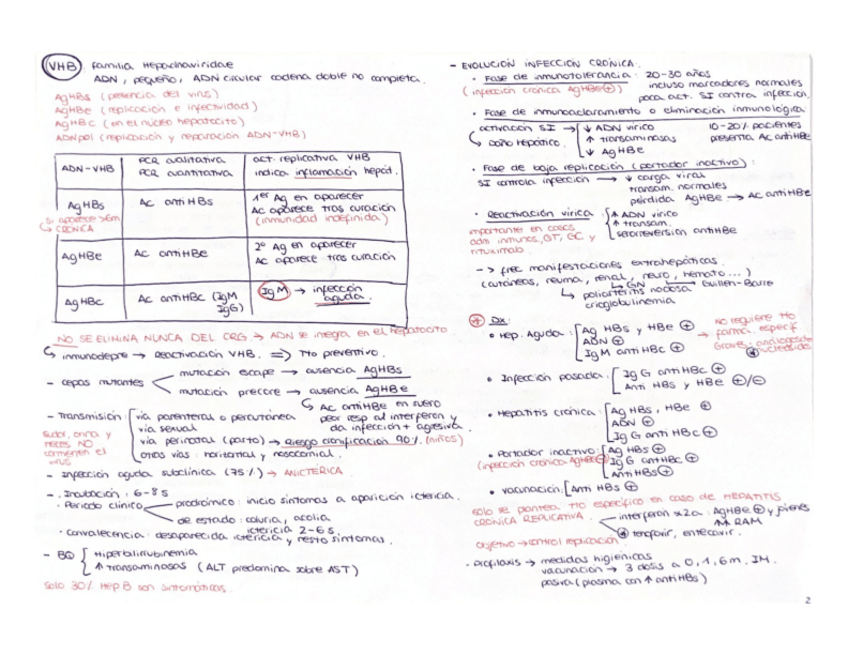 VHB familia Hepadnaviridae
ADN, pequeño, ADN circular cadena doble no completa.
AgHBs (presencia del virus)
AgHBe (replicación e infectividad)
AgHBc (en el núcleo hepatocito)
ADNpol (replicación y reparación ADN-VHB)
ADN-VHB
PCR cualitativa
PCR cuantitativa
act. replicativa VHB
indica inflamación hepat.
AgHBs
si aparece >6m
↳ CRÓNICA
Ac anti HBs
1er Ag en aparecer
Ac aparece tras curación
(inmunidad indefinida)
AgHBe
Ac antiHBe
2º Ag en aparecer
Ac aparece tras curación
AgHBc
Ac antiHBc (IgM
IgG)
IgM → infección
aguda.
NO SE ELIMINA NUNCA DEL ORG. → ADN se integra en el hepatocito
↳ inmunodepre → Reactivación VHB. ⇒ Tto preventivo.
- cepas mutantes
mutación escape → ausencia AgHBs
mutación precore → ausencia AgHBe
↳ Ac antiHBe en suero
peor resp al interferon y
da infección + agresiva.
- Transmisión:
vía parenteral o percutánea
vía sexual
vía perinatal (parto) → Riesgo cronificación 90%. (niños)
otras vías: horizontal y nosocomial.
Sudor, orina y
heces NO
contienen el
virus
- Infección aguda subclínica (75%) → ANICTÉRICA
- . Incubación: 6-8 s
· Periodo clínico
prodrómico: inicio síntomas a aparición ictericia.
de estado: coluria, acolia
ictericia 2-6 s.
· Convalecencia: desaparecida ictericia y resto síntomas.
- BQ
Hiperbilirrubinemia
↑ transaminasas (ALT predomina sobre AST)
Solo 30% Hep.B son sintomáticas.
- EVOLUCIÓN INFECCIÓN CRÓNICA.
· Fase de inmunotolerancia: 20-30 años
(infección crónica AgHBe⊕)
incluso marcadores normales
poca act. SI contra infección.
· Fase de inmunoaclaramiento o eliminación inmunológica
activación SI →
↳ Daño hepático.
↓ ADN vírico
↑ transaminasas
↓ AgHBe
10-20% pacientes
presenta Ac antiHBe
· Fase de baja replicación (portador inactivo):
SI controla infección →
↓ carga viral
transam. normales
pérdida AgHBe → Ac antiHBe
· Reactivación vírica:
↑ ADN vírico
↑ transam.
seroreversión antiHBe
importante en casos
adm inmunos, QT, GC y
rituximab.
- > frec manifestaciones extrahepáticas.
(cutáneas, reuma, renal, neuro, hemato...)
↳ GN
↳ Guillen-Barre
↳ poliarteritis nodosa
crioglobulinemia
* Dx:
· Hep. Aguda:
Ag HBs y HBe ⊕
ADN ⊕
IgM antiHBc ⊕
→ NO requiere tto
farma. específ
Graves: análogos de
nucleósido
· Infección pasada:
Ig G antiHBc ⊕
Anti HBs y HBe ⊕/⊖
· Hepatitis crónica:
Ag HBs, HBe ⊕
ADN ⊕
Ig G antiHBc ⊕
· Portador inactivo:
(infección crónica AgHBe⊖)
Ag HBs ⊕
Ig G antHBc ⊕
AntiHBs ⊕
· vacunación:
Anti HBs ⊕
Solo se plantea tto específico en caso de HEPATITIS
CRÓNICA REPLICATIVA.
interferon α2a: AgHBe ⊕ y jóvenes
RAM
tenofovir, entecavir.
objetivo → control replicación.
· Profilaxis → medidas higiénicas
vacunación → 3 dosis a 0, 1, 6 m. IM.
pasiva (plasma con ↑ antiHBs)
2